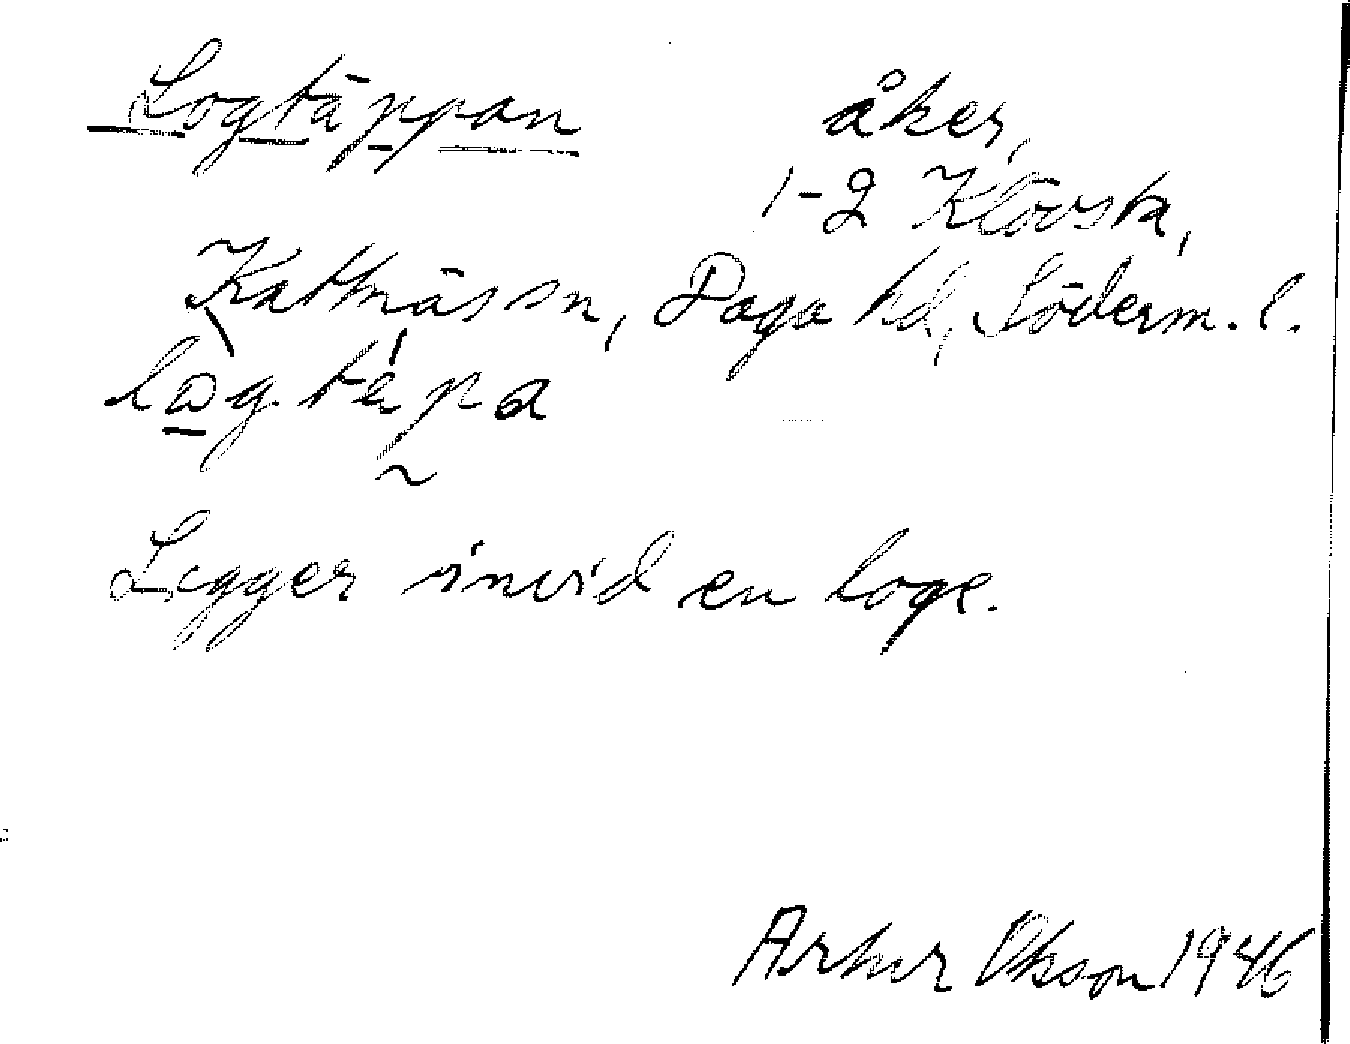 Logtäppan åker,
1-2 Klövsta,
Kattnäs sn, Daga hd, Söderm. l.
Ligger invid en loge.
Arthur Olsson 1946